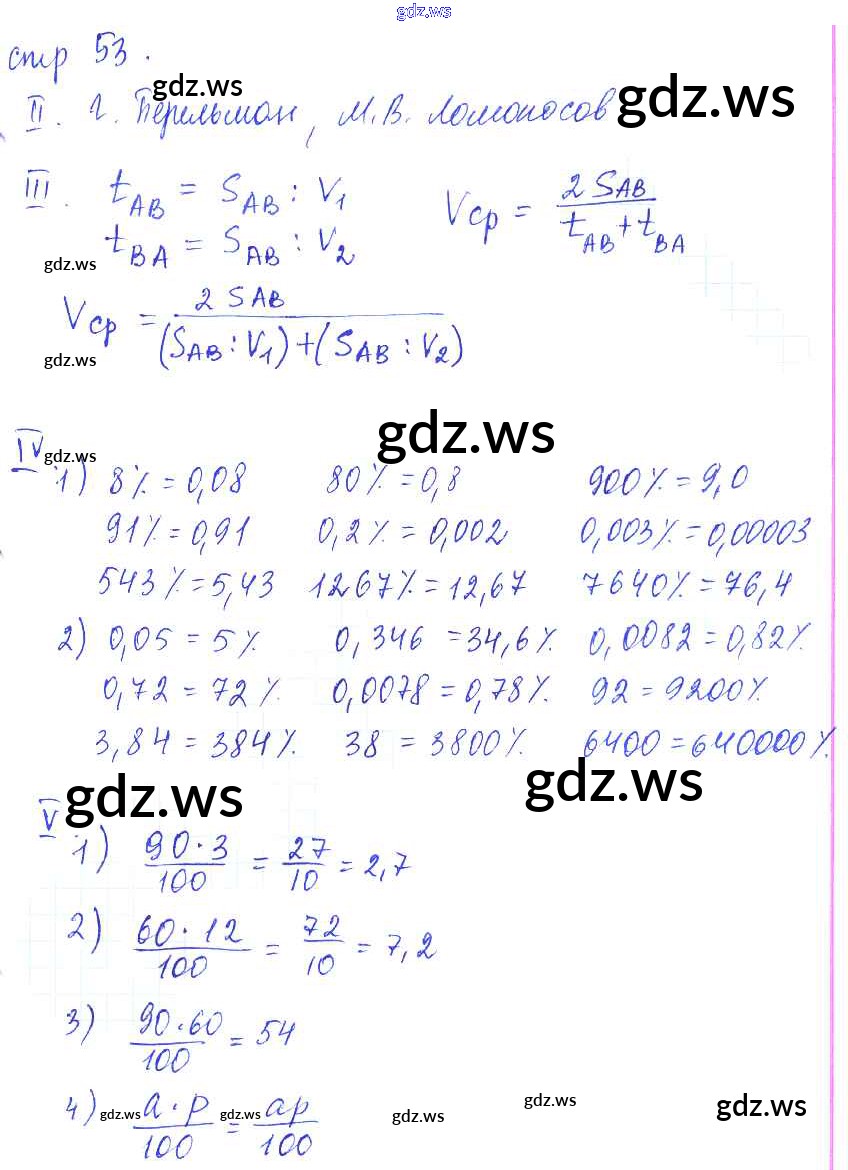 gdz.ws
стр 53.
gdz.ws gdz.ws
II. Г. Перельман, М.В. Ломоносов
III. t_AB = S_AB : V_1 V_ср = 2 S_AB / (t_AB + t_BA)
t_BA = S_AB : V_2
gdz.ws
V_ср = 2 S_AB / ((S_AB : V_1) + (S_AB : V_2))
gdz.ws
gdz.ws
IV gdz.ws
1) 8% = 0,08 80% = 0,8 900% = 9,0
91% = 0,91 0,2% = 0,002 0,003% = 0,00003
543% = 5,43 1267% = 12,67 7640% = 76,4
2) 0,05 = 5% 0,346 = 34,6% 0,0082 = 0,82%
0,72 = 72% 0,0078 = 0,78% 92 = 9200%
3,84 = 384% 38 = 3800% 6400 = 640000%
gdz.ws gdz.ws
V 1) 90·3/100 = 27/10 = 2,7
2) 60·12/100 = 72/10 = 7,2
3) 90·60/100 = 54
4) a·p/100 = ap/100
gdz.ws gdz.ws gdz.ws gdz.ws gdz.ws